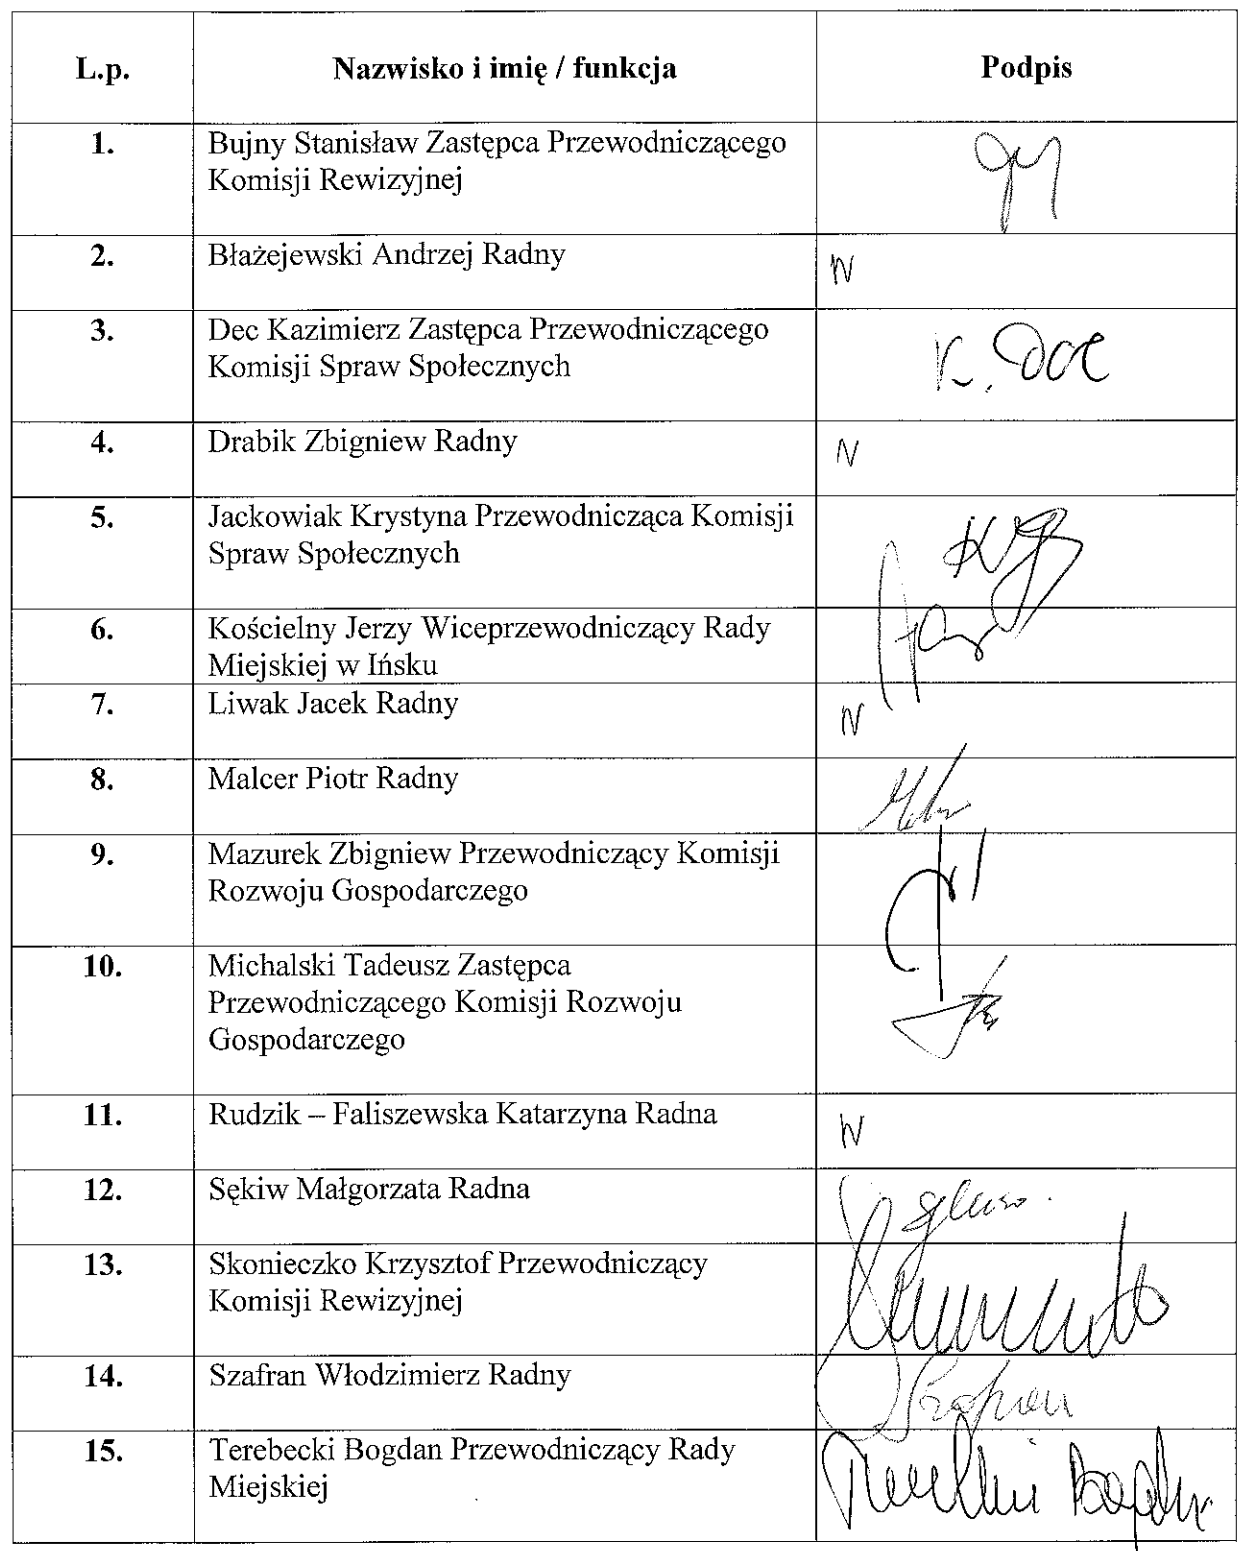 L.p. Nazwisko i imię / funkcja Podpis
1. Bujny Stanisław Zastępca Przewodniczącego
Komisji Rewizyjnej
2. Błażejewski Andrzej Radny N
3. Dec Kazimierz Zastępca Przewodniczącego
Komisji Spraw Społecznych
K. Dec
4. Drabik Zbigniew Radny N
5. Jackowiak Krystyna Przewodnicząca Komisji
Spraw Społecznych
6. Kościelny Jerzy Wiceprzewodniczący Rady
Miejskiej w Ińsku
7. Liwak Jacek Radny N
8. Malcer Piotr Radny
9. Mazurek Zbigniew Przewodniczący Komisji
Rozwoju Gospodarczego
10. Michalski Tadeusz Zastępca
Przewodniczącego Komisji Rozwoju
Gospodarczego
11. Rudzik – Faliszewska Katarzyna Radna N
12. Sękiw Małgorzata Radna
13. Skonieczko Krzysztof Przewodniczący
Komisji Rewizyjnej
14. Szafran Włodzimierz Radny Szafran
15. Terebecki Bogdan Przewodniczący Rady
Miejskiej
Terebecki Bogdan